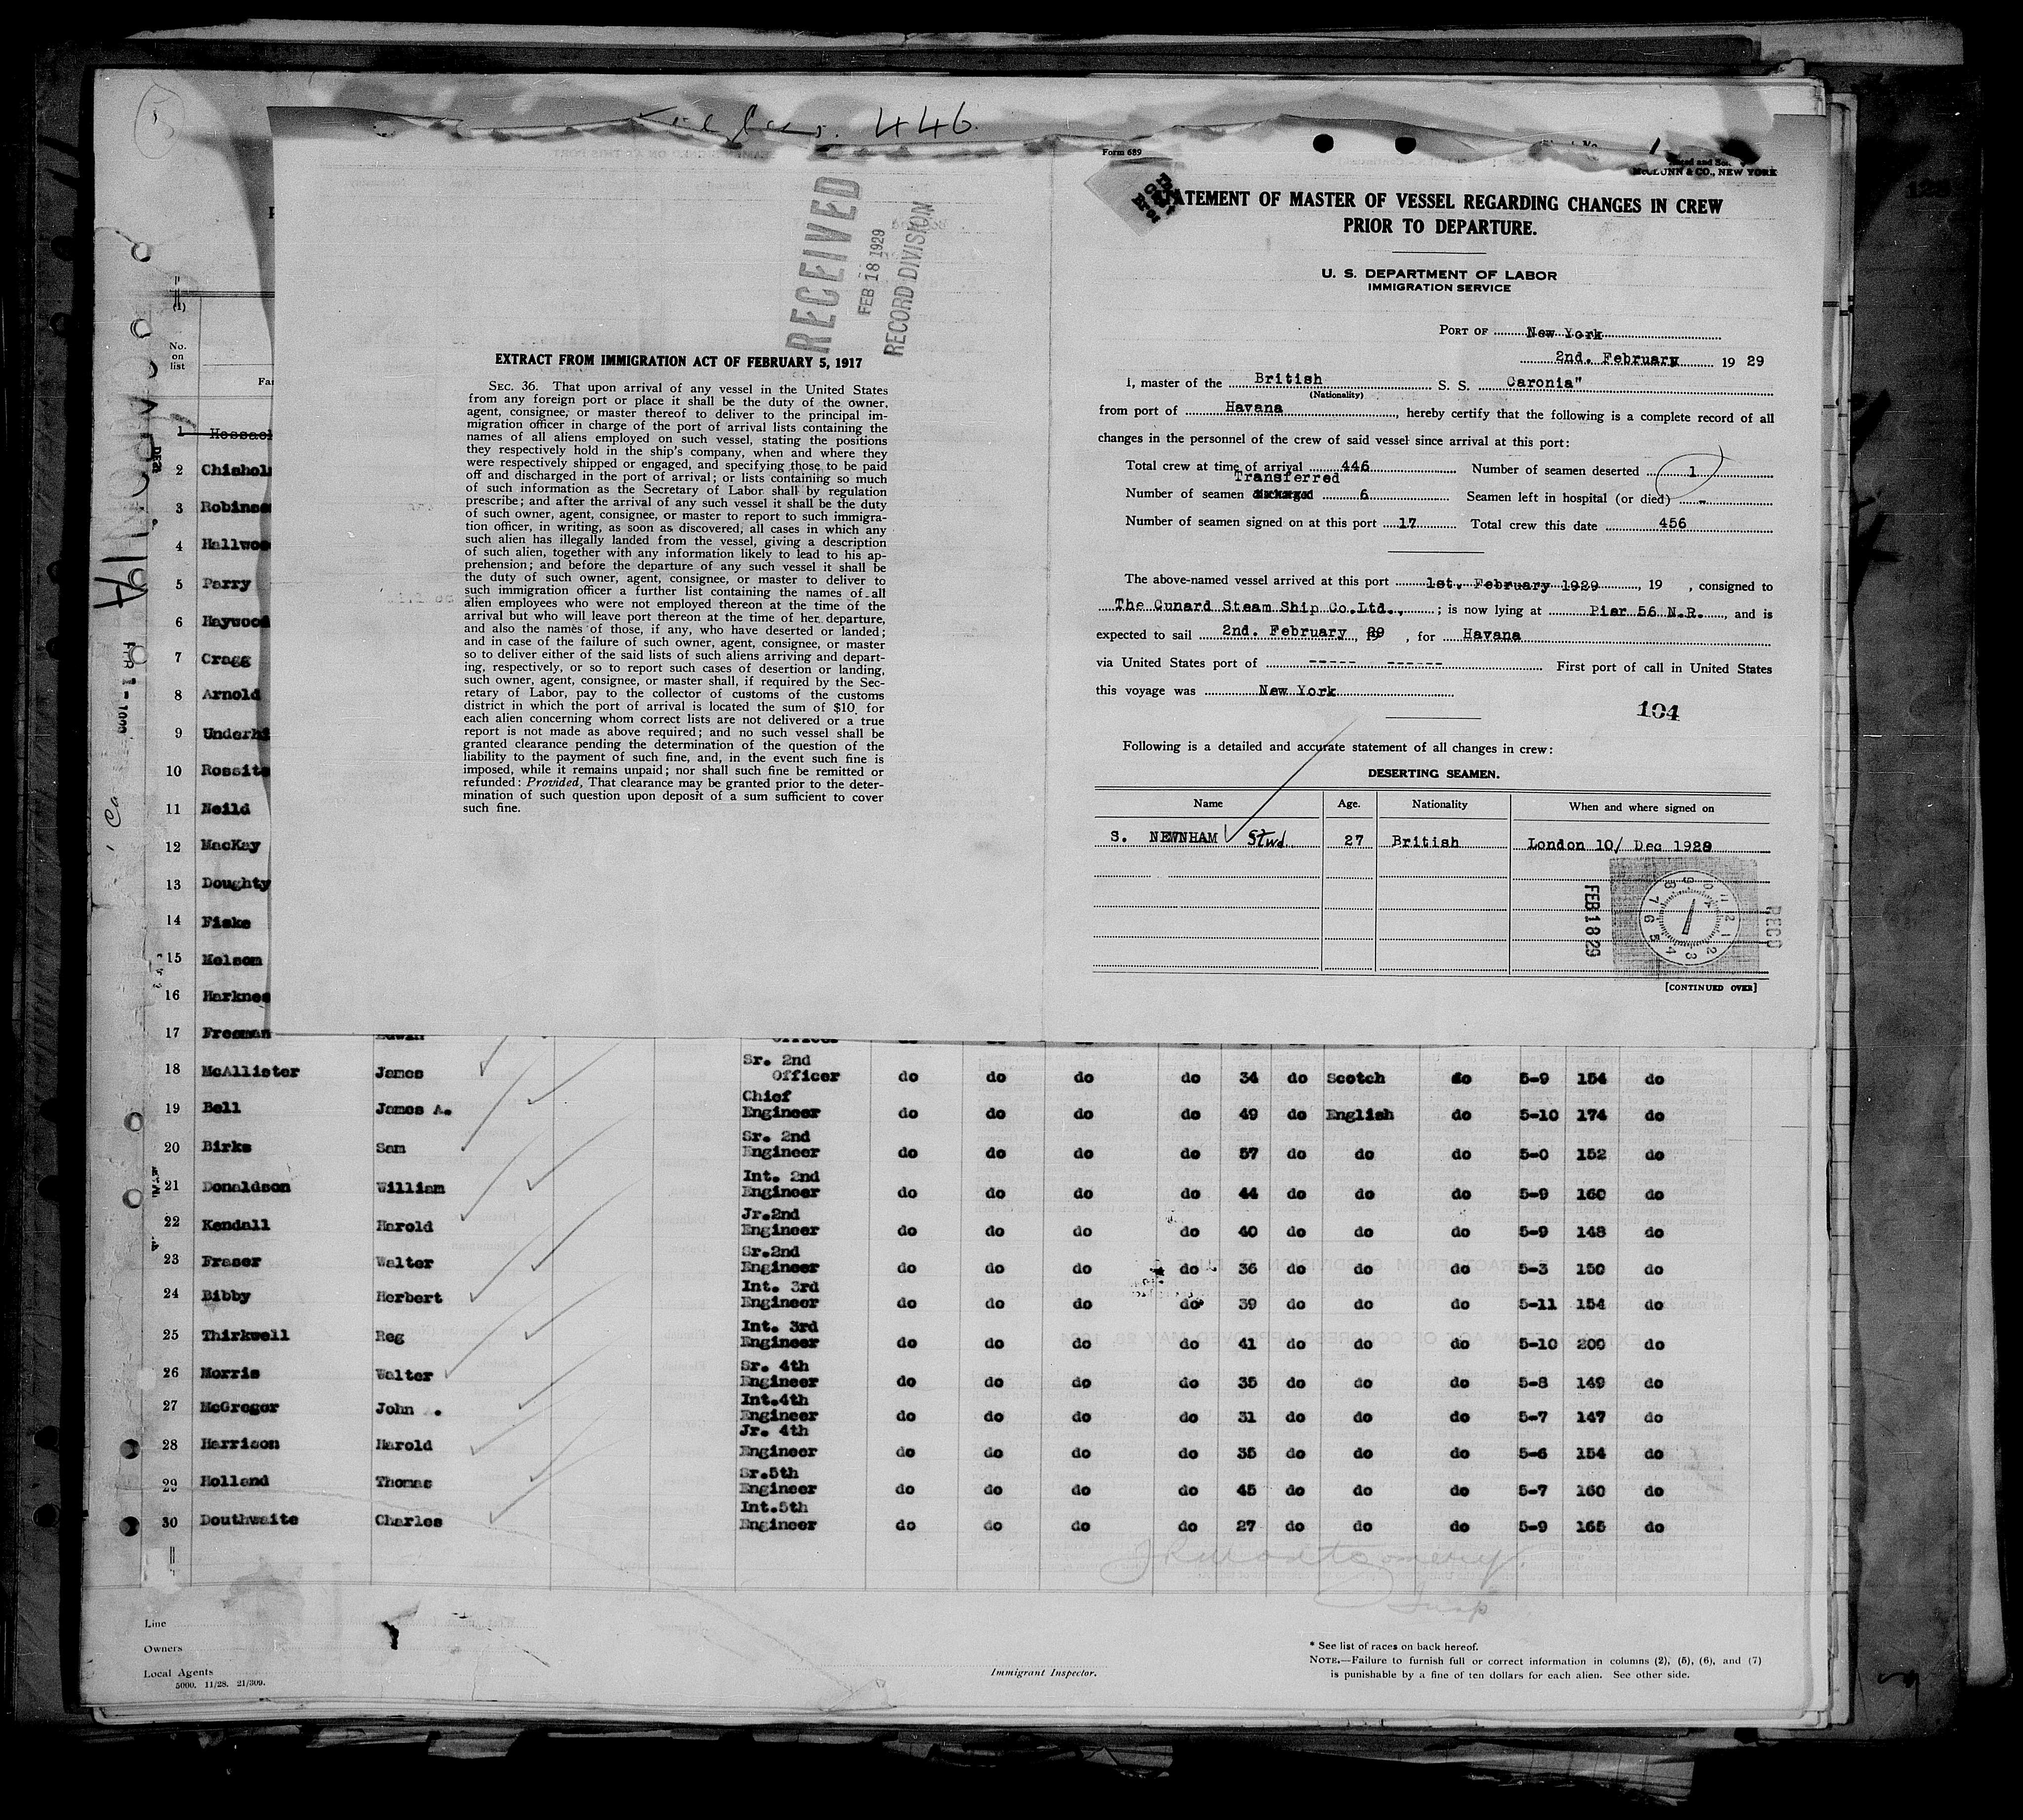 446.
RECEIVED
FEB 18 1929
RECORD DIVISION
EXTRACT FROM IMMIGRATION ACT OF FEBRUARY 5, 1917
SEC. 36. That upon arrival of any vessel in the United States
from any foreign port or place it shall be the duty of the owner,
agent, consignee, or master thereof to deliver to the principal im-
migration officer in charge of the port of arrival lists containing the
names of all aliens employed on such vessel, stating the positions
they respectively hold in the ship's company, when and where they
were respectively shipped or engaged, and specifying those to be paid
off and discharged in the port of arrival; or lists containing so much
of such information as the Secretary of Labor shall by regulation
prescribe; and after the arrival of any such vessel it shall be the duty
of such owner, agent, consignee, or master to report to such immigra-
tion officer, in writing, as soon as discovered, all cases in which any
such alien has illegally landed from the vessel, giving a description
of such alien, together with any information likely to lead to his ap-
prehension; and before the departure of any such vessel it shall be
the duty of such owner, agent, consignee, or master to deliver to
such immigration officer a further list containing the names of all
alien employees who were not employed thereon at the time of the
arrival but who will leave port thereon at the time of her departure,
and also the names of those, if any, who have deserted or landed;
and in case of the failure of such owner, agent, consignee, or master
so to deliver either of the said lists of such aliens arriving and depart-
ing, respectively, or so to report such cases of desertion or landing,
such owner, agent, consignee, or master shall, if required by the Sec-
retary of Labor, pay to the collector of customs of the customs
district in which the port of arrival is located the sum of $10 for
each alien concerning whom correct lists are not delivered or a true
report is not made as above required; and no such vessel shall be
granted clearance pending the determination of the question of the
liability to the payment of such fine, and, in the event such fine is
imposed, while it remains unpaid; nor shall such fine be remitted or
refunded: Provided, That clearance may be granted prior to the deter-
mination of such question upon deposit of a sum sufficient to cover
such fine.
Form 689
McGLUNN & CO., NEW YORK
ATEMENT OF MASTER OF VESSEL REGARDING CHANGES IN CREW
PRIOR TO DEPARTURE.
U. S. DEPARTMENT OF LABOR
IMMIGRATION SERVICE
PORT OF New York
2nd. February 19 29
I, master of the British S. S. Caronia"
(Nationality)
from port of Havana, hereby certify that the following is a complete record of all
changes in the personnel of the crew of said vessel since arrival at this port:
Total crew at time of arrival 446 Number of seamen deserted 1
Transferred
Number of seamen 6 Seamen left in hospital (or died) -
Number of seamen signed on at this port 17 Total crew this date 456
The above-named vessel arrived at this port 1st. February 1929, 19 , consigned to
The Cunard Steam Ship Co.Ltd., ; is now lying at Pier 56 N.R., and is
expected to sail 2nd. February 29, for Havana
via United States port of ----- ------ First port of call in United States
this voyage was New York
104
Following is a detailed and accurate statement of all changes in crew:
DESERTING SEAMEN.
Name Age. Nationality When and where signed on
S. NEWNHAM Stwd. 27 British London 10/ Dec 1928
FEB 18 29
RECD
[CONTINUED OVER]
(1)
No. on list
1
2 Chishol
3 Robinso
4 Hallwoo
5 Parry
6 Haywood
7 Cragg
8 Arnold
9 Underhi
10 Rossite
11 Neild
12 MacKay
13 Doughty
14 Fiske
15 Melsom
16 Harknes
17 Freeman Edwin Officer
18 McAllister James Sr. 2nd Officer do do do do 34 do Scotch do 5-9 154 do
19 Bell James A. Chief Engineer do do do do 49 do English do 5-10 174 do
20 Birks Sam Sr. 2nd Engineer do do do do 57 do do do 5-0 152 do
21 Donaldson William Int. 2nd Engineer do do do do 44 do do do 5-9 160 do
22 Kendall Harold Jr.2nd Engineer do do do do 40 do do do 5-9 148 do
23 Fraser Walter Sr.2nd Engineer do do do do 36 do do do 5-3 150 do
24 Bibby Herbert Int. 3rd Engineer do do do do 39 do do do 5-11 154 do
25 Thirkwell Reg Int. 3rd Engineer do do do do 41 do do do 5-10 200 do
26 Morris Walter Sr. 4th Engineer do do do do 35 do do do 5-8 149 do
27 McGregor John . Int.4th Engineer do do do do 31 do do do 5-7 147 do
28 Harrison Harold Jr. 4th Engineer do do do do 35 do do do 5-6 154 do
29 Holland Thomas Sr.5th Engineer do do do do 45 do do do 5-7 160 do
30 Douthwaite Charles Int.5th Engineer do do do do 27 do do do 5-9 165 do
Montgomery
Insp
Line
Owners
Local Agents
5000. 11/28. 21/309.
Immigrant Inspector.
* See list of races on back hereof.
NOTE.—Failure to furnish full or correct information in columns (2), (5), (6), and (7)
is punishable by a fine of ten dollars for each alien. See other side.